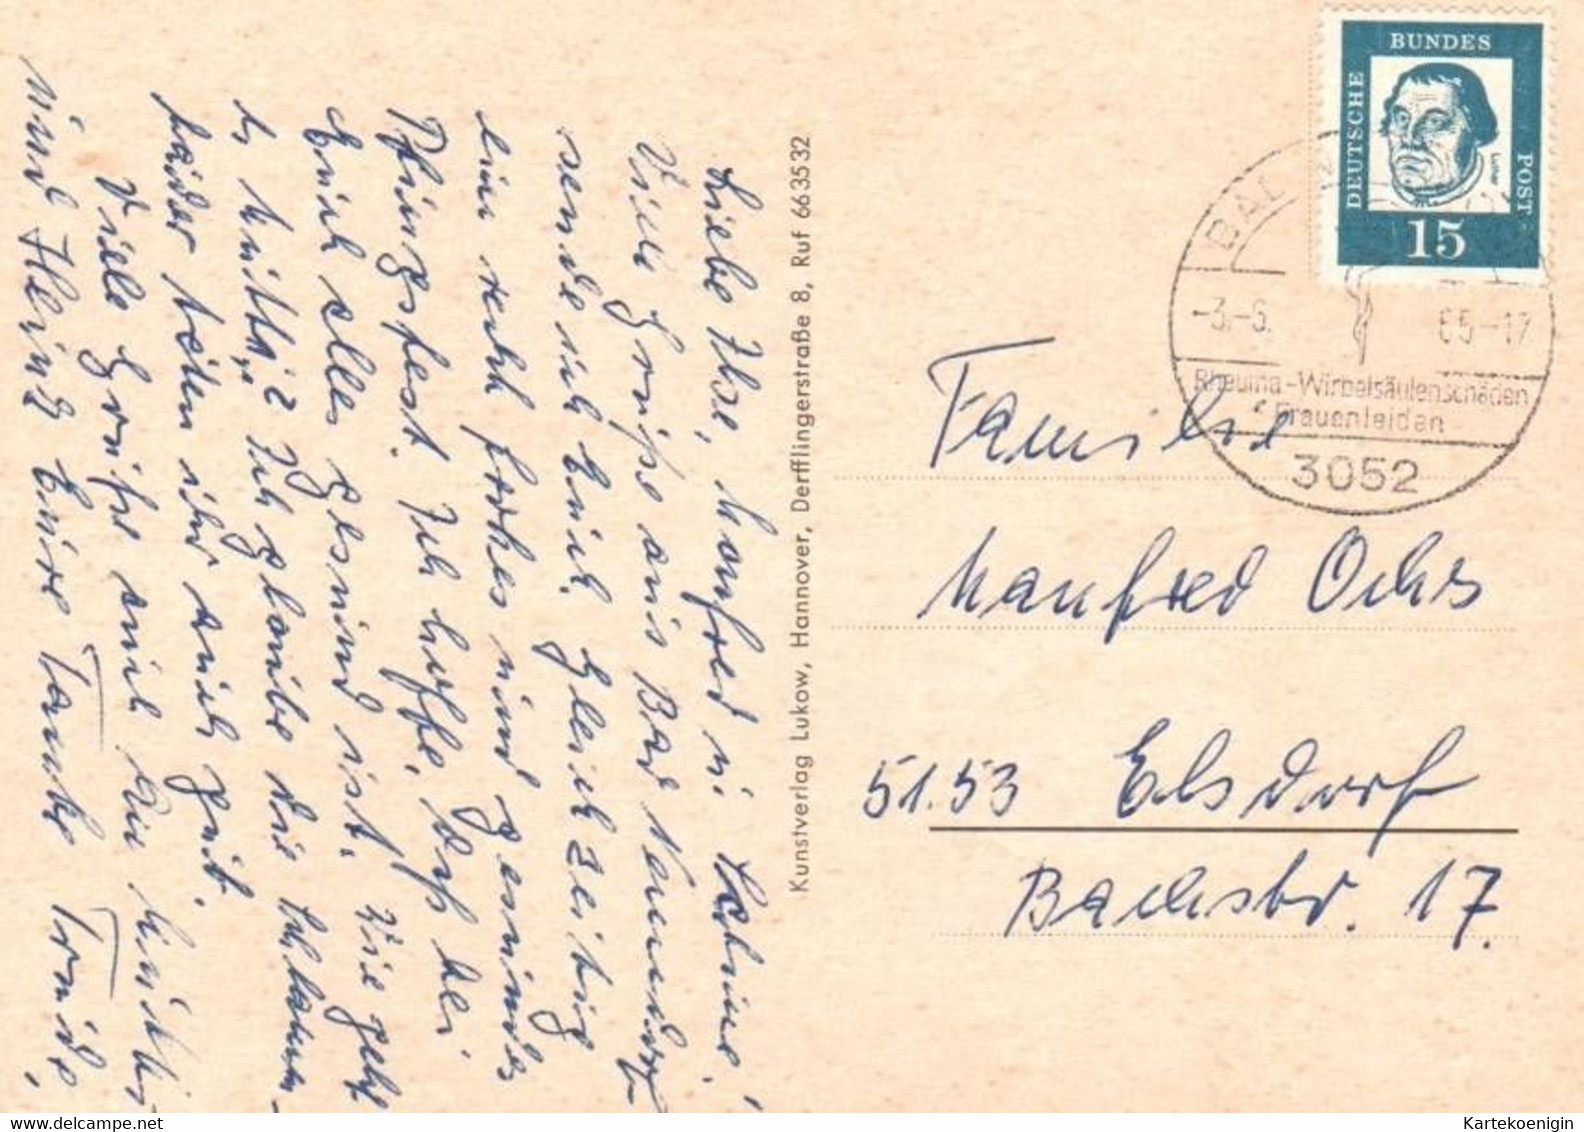 Liebe Ilse, Manfred u. Sabine!
Viele Grüße aus Bad Nenndorf
sende ich Euch. Gleichzeitig
ein recht frohes und gesundes
Pfingstfest. Ich hoffe, daß bei
Euch alles gesund ist. Wie geht
es Mutti? Ich glaube die
bäder täten ihr auch gut.
Viele Grüße auch an Mutti
und Heinz Eure Tante Trude.
Kunstverlag Lukow, Hannover, Derfflingerstraße 8, Ruf 66 35 32
DEUTSCHE BUNDES POST
Luther
15
BAD
-3.-6. 65-17
Rheuma-Wirbelsäulenschäden
Frauenleiden
3052
Familie
Manfred Ochs
5153 Elsdorf
Bachstr. 17.
delcampe.net
Kartekoenigin